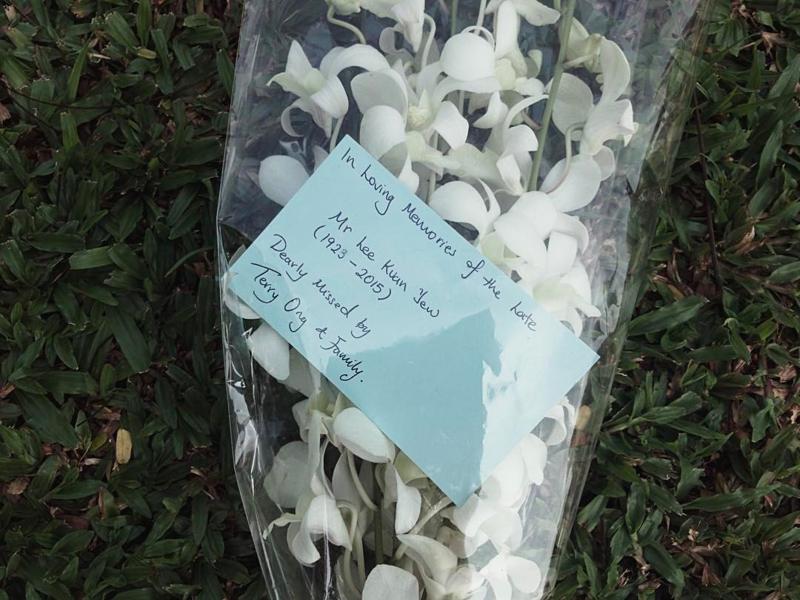 In Loving Memories of the Late
Mr Lee Kuan Yew
(1923 - 2015)
Dearly missed by
Terry Ong & Family.